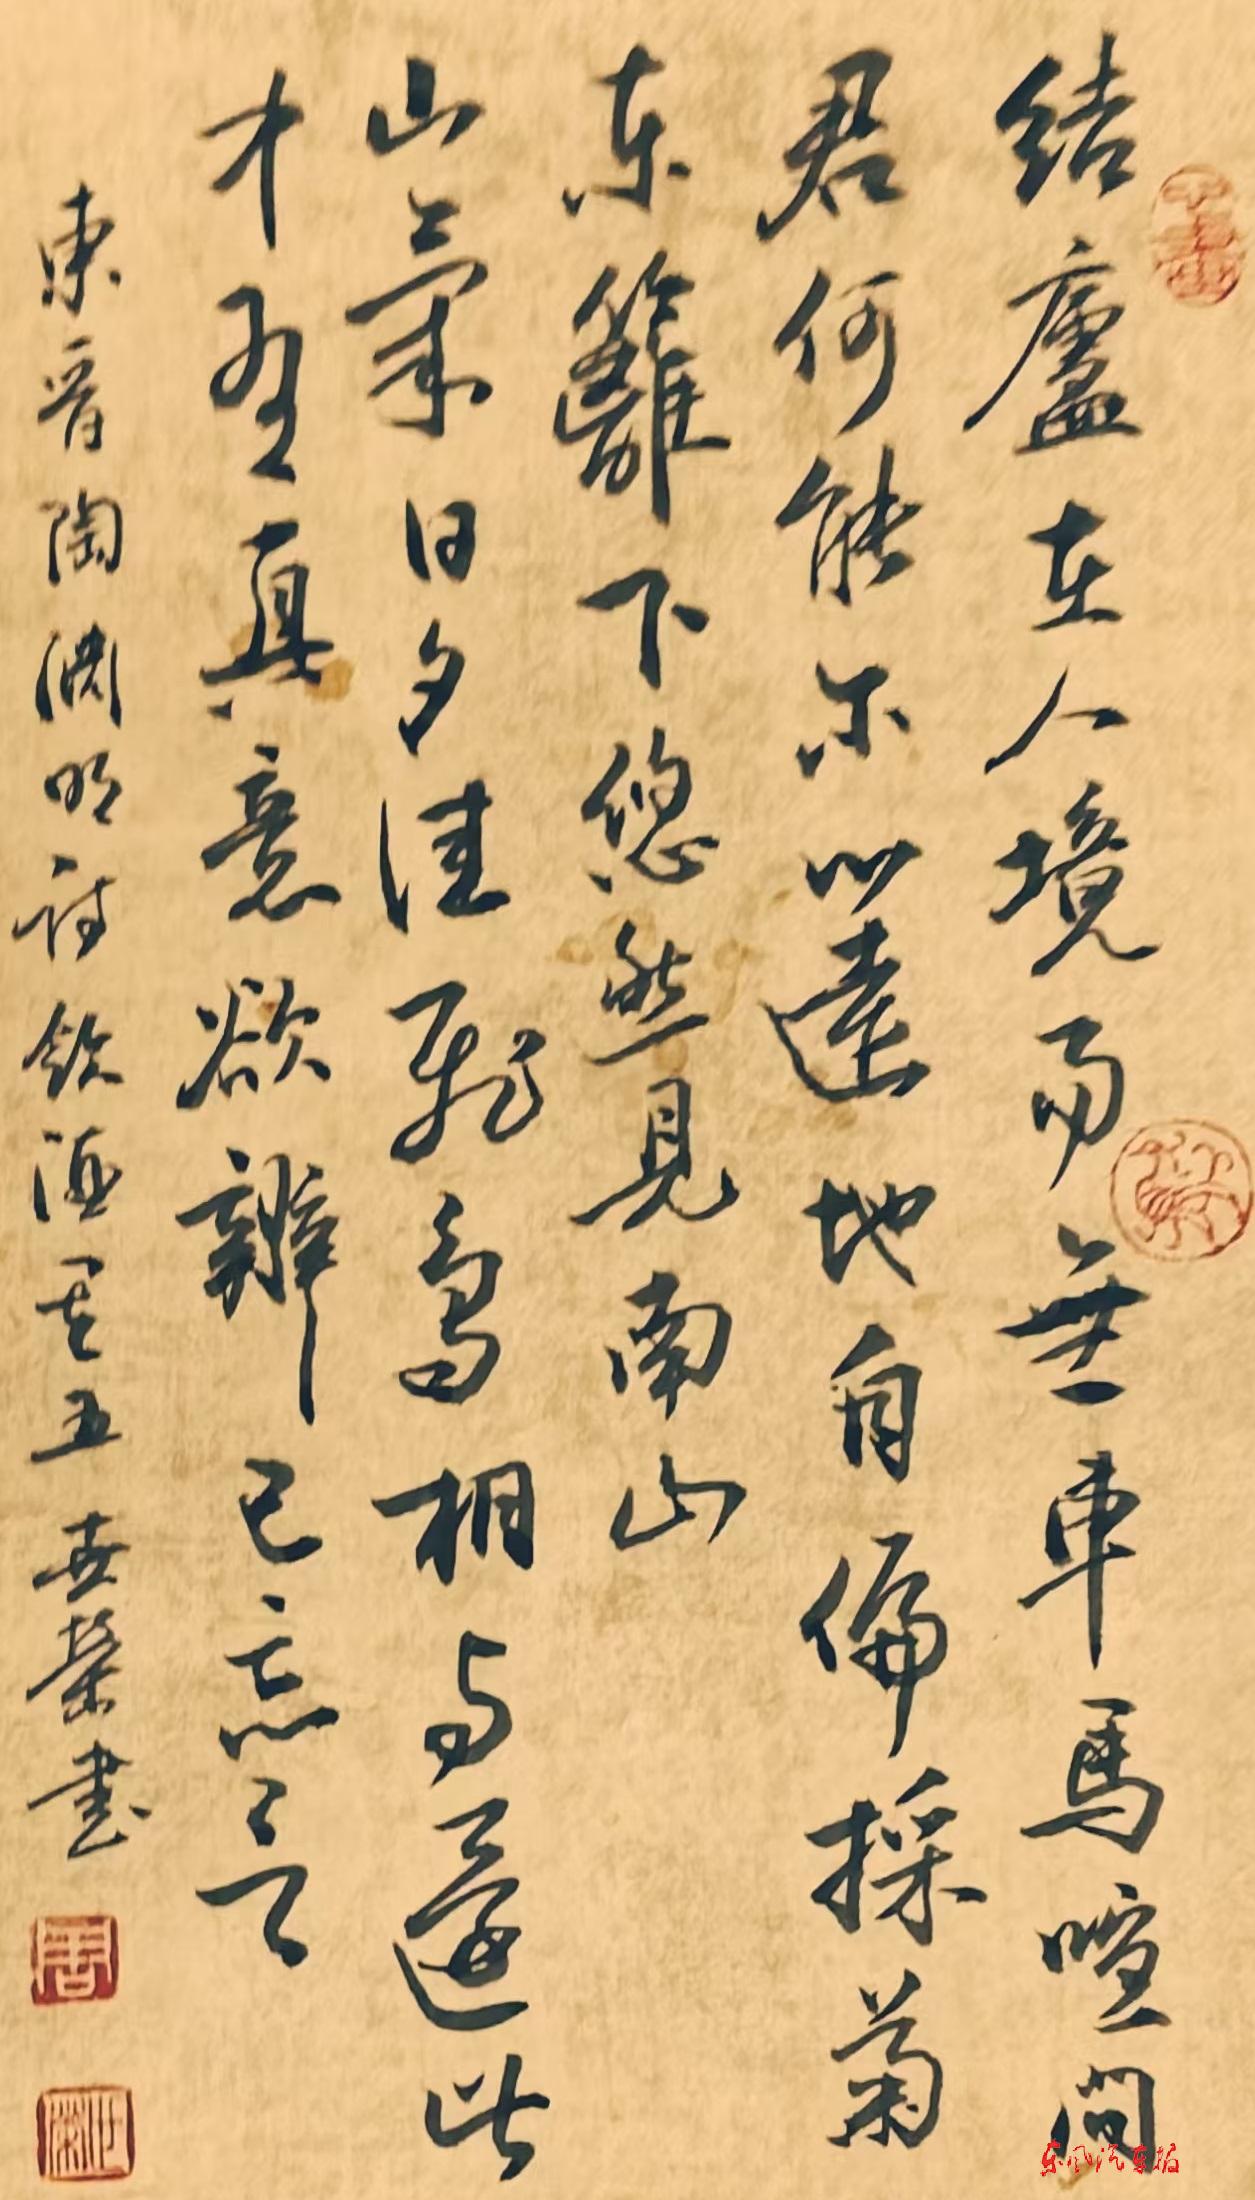 結廬在人境而無車馬喧问
君何能尔心遠地自偏採菊
东籬下悠然見南山
山氣日夕佳飛鳥相与還此
中有真意欲辯已忘言
東晋陶渊明诗飲酒其五世榮書
周
世榮
东风汽车报